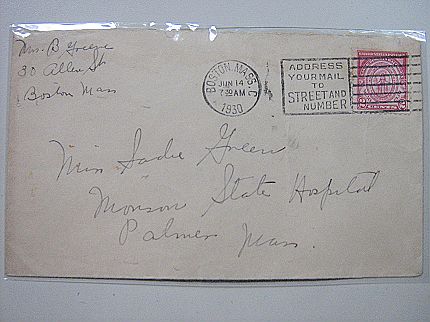 Mrs. B Greene
30 Allen St
Boston Mass
BOSTON, MASS.
JUN 14
7:30 AM
1930
ADDRESS
YOUR MAIL
TO
STREET AND
NUMBER
Miss Sadie Green
Monson State Hospital
Palmer Mass.